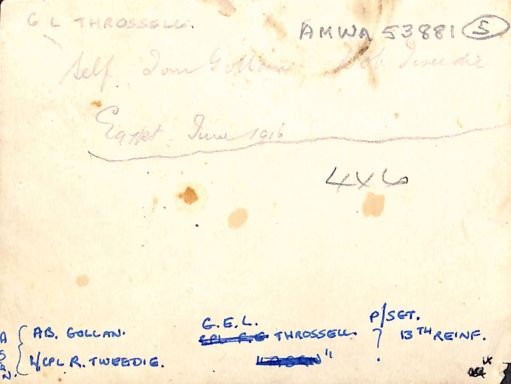 G L THROSSELL.
AMWA 53881 5
Self Tom Gollan Bob Tweedie
Egypt June 1916
4x6
G.E.L. P/SGT.
AB. GOLLAN. THROSSELL ? 13TH REINF.
L/CPL R. TWEEDIE.